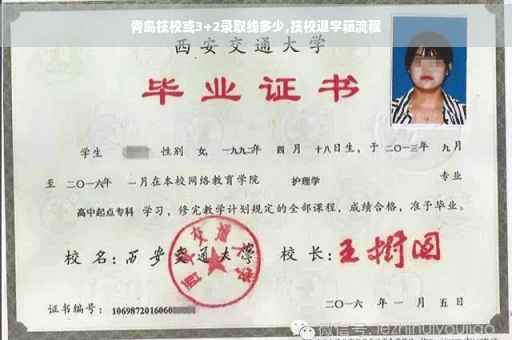 青岛技校或3+2录取线多少,技校退学籍流程
西安交通大学
毕业证书
学生 性别 女,一九九二年 四月 十八日生,于二〇一三年 九月
至 二〇一六年 一月在本校网络教育学院 护理学 专业
高中起点专科 学习,修完教学计划规定的全部课程,成绩合格,准予毕业。
校 名:西安交通大学 校 长:王树国
西安交通大学
证书编号:1069872016060
二〇一六 年 一 月 五 日
微信号:jezhihuiyoujiao